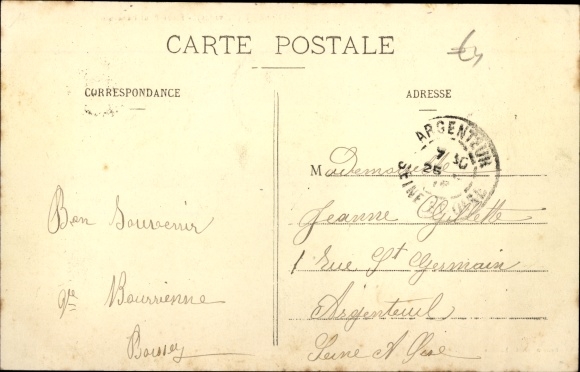 CARTE POSTALE
CORRESPONDANCE
Bon Souvenir
Bourrienne
ADRESSE
ARGENTEUIL
7 30
26
SEINE
Mademoiselle
Jeanne Gillette
1 Rue St Germain
Argenteuil
Seine & Oise